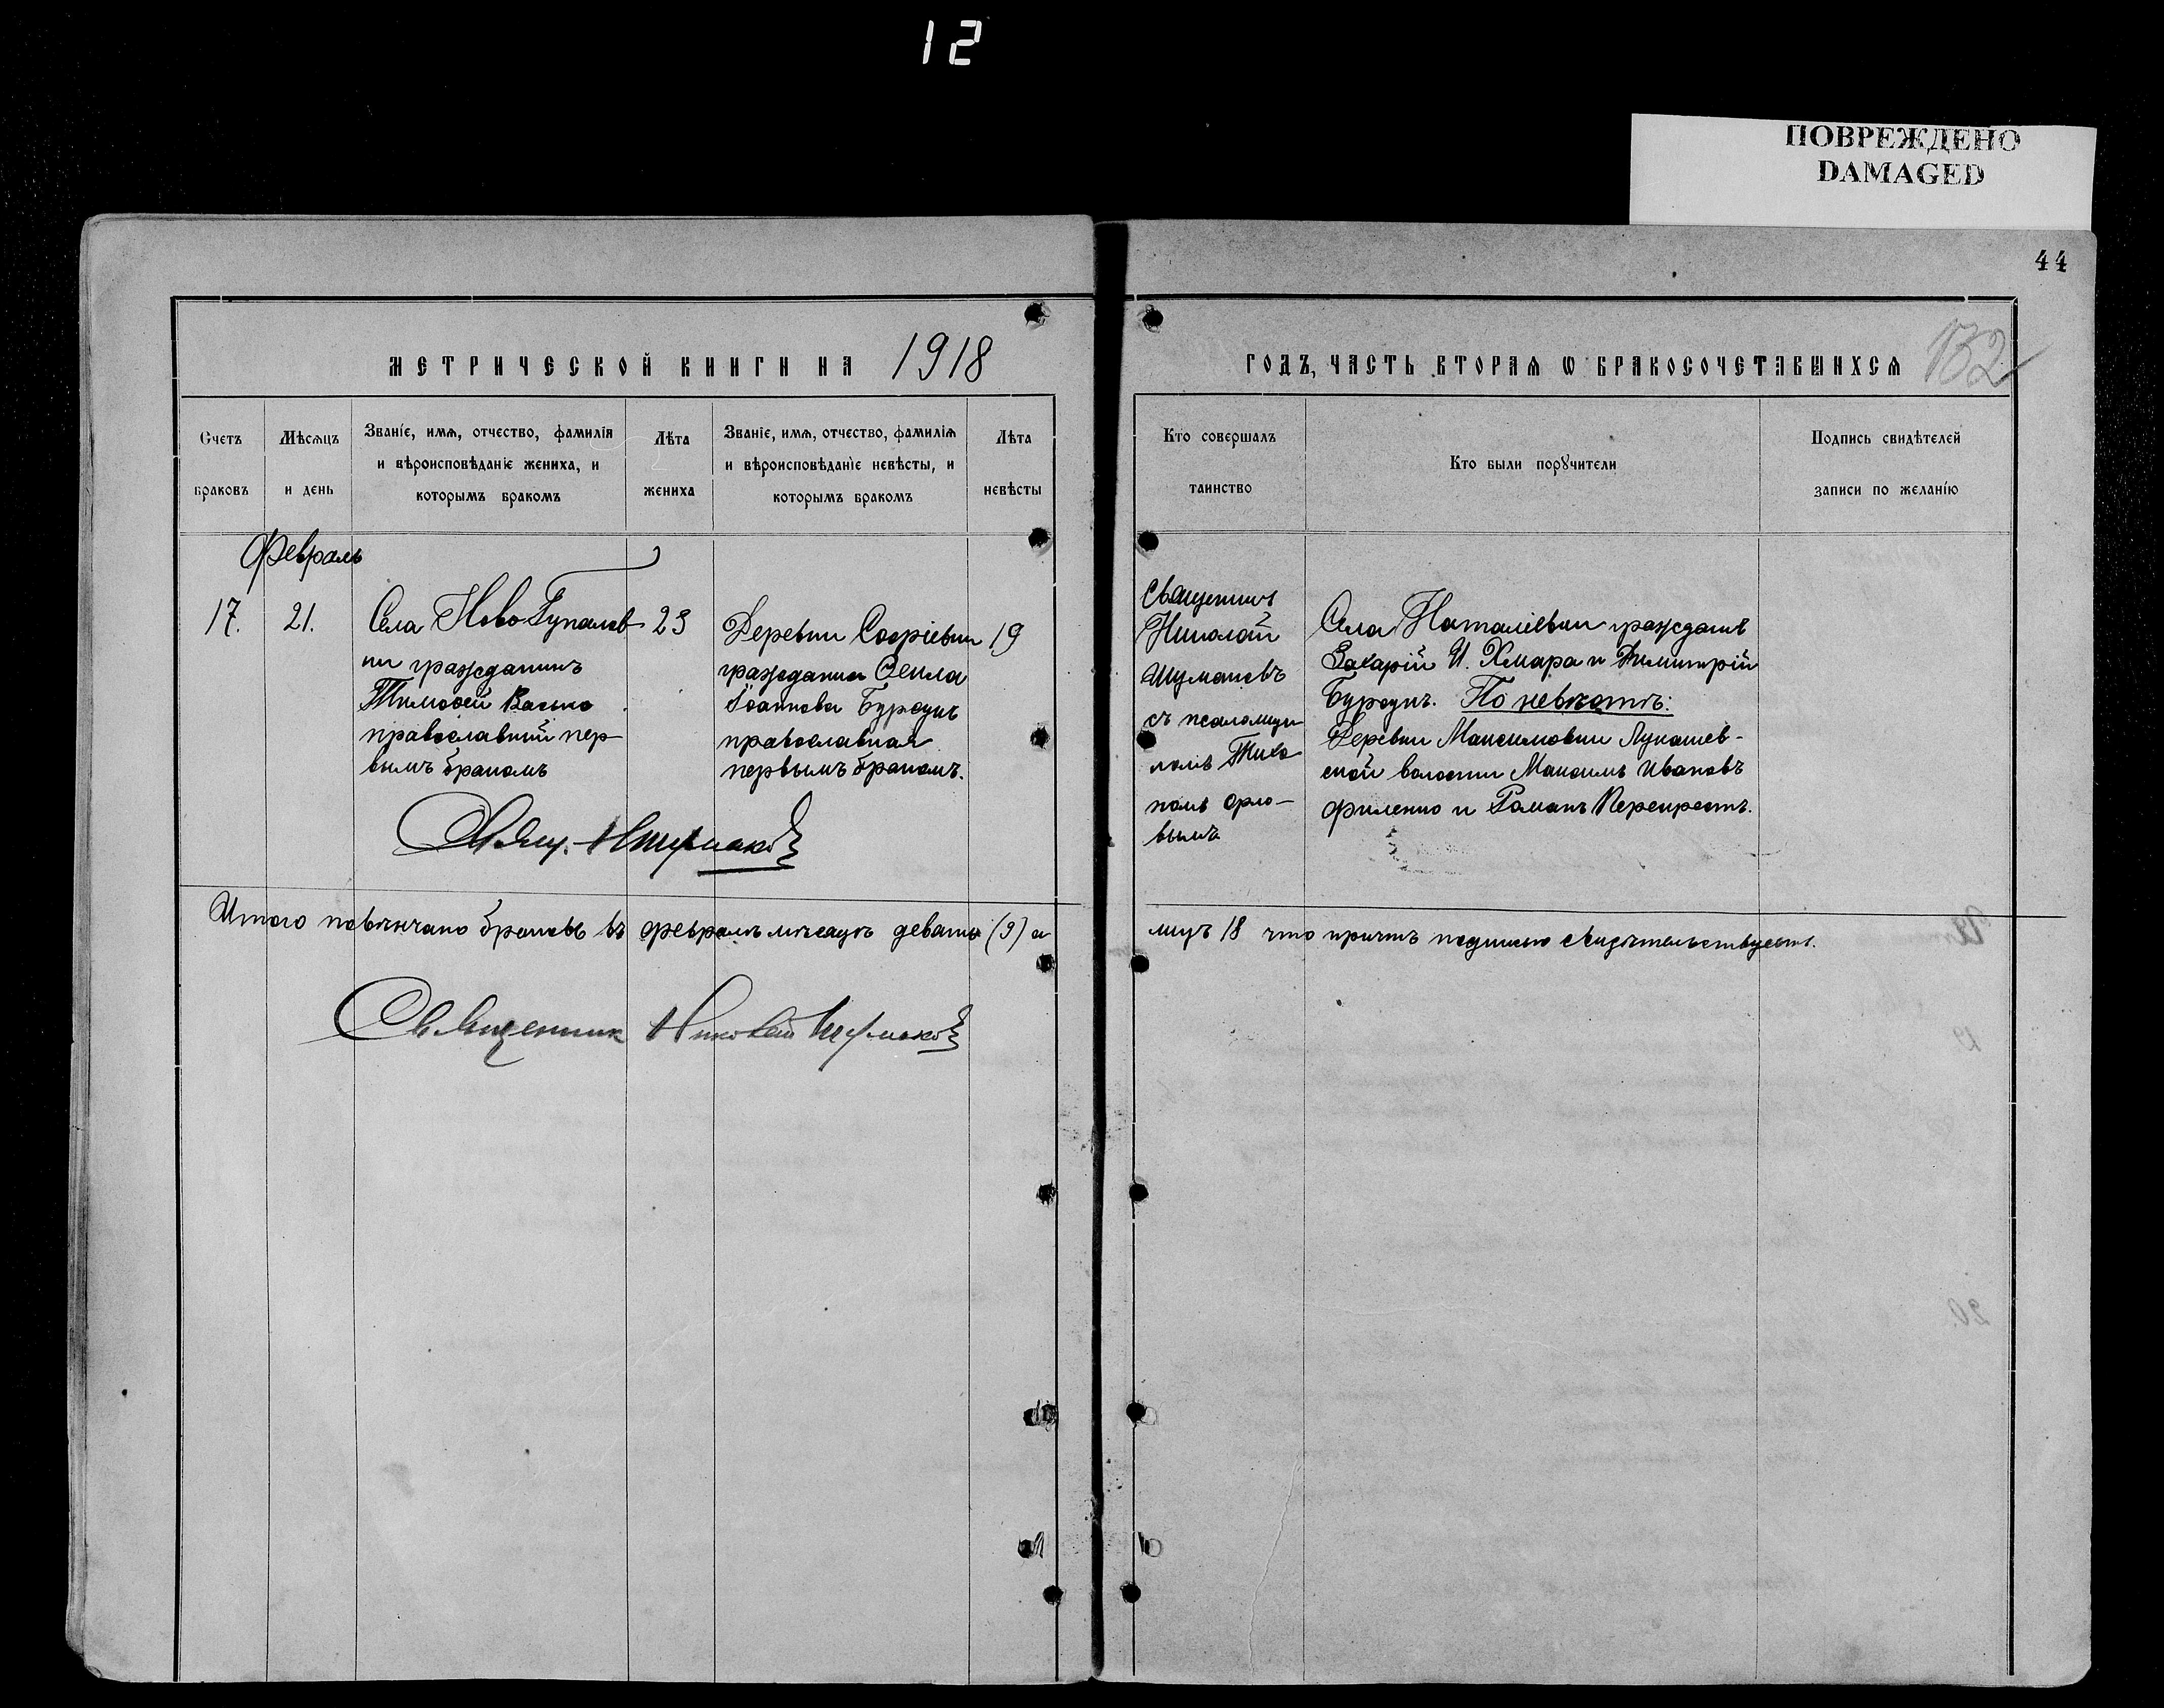 12
ПОВРЕЖДЕНО
DAMAGED
44
МЕТРИЧЕСКОЙ КНИГИ НА 1918
ГОДЪ, ЧАСТЬ ВТОРАѦ Ѡ БРАКОСОЧЕТАВШИХСѦ
132
Счетъ
браковъ
Мѣсѧцъ
и день
Званіе, имѧ, отчество, фамилія
и вѣроисповѣданіе жениха, и
которымъ бракомъ
Лѣта
жениха
Званіе, имѧ, отчество, фамиліѧ
и вѣроисповѣданіе невѣсты, и
которымъ бракомъ
Лѣта
невѣсты
Кто совершалъ
таинство
Кто были порꙋчители
Подпись свидѣтелей
записи по желанію
Февраль
17.
21.
Села Ново Гупалов
ки гражданинъ
Тимоѳей Васько
православный пер-
вымъ бракомъ
23
Деревни Софіевки
гражданка Ѳекла
Іоаннова Бурсукъ
православная
первымъ бракомъ.
19
Священникъ
Николай
Шумаковъ
съ псаломщи
комъ Тихо
номъ Орло-
вымъ
Села Наталіевки граждане
Захарій И. Хмара и Димитрій
Бурсукъ. По невѣстѣ:
Деревни Максимовки Лукашев-
ской волости Максимъ Ивановъ
Филенко и Романъ Перекрестъ.
Свящ. Н Шумаковъ
Итого повѣнчано браковъ въ февралѣ мѣсяцѣ девять (9) а
всего 18 что причтъ подписью свидѣтельствуетъ.
Священник Николай Шумаковъ